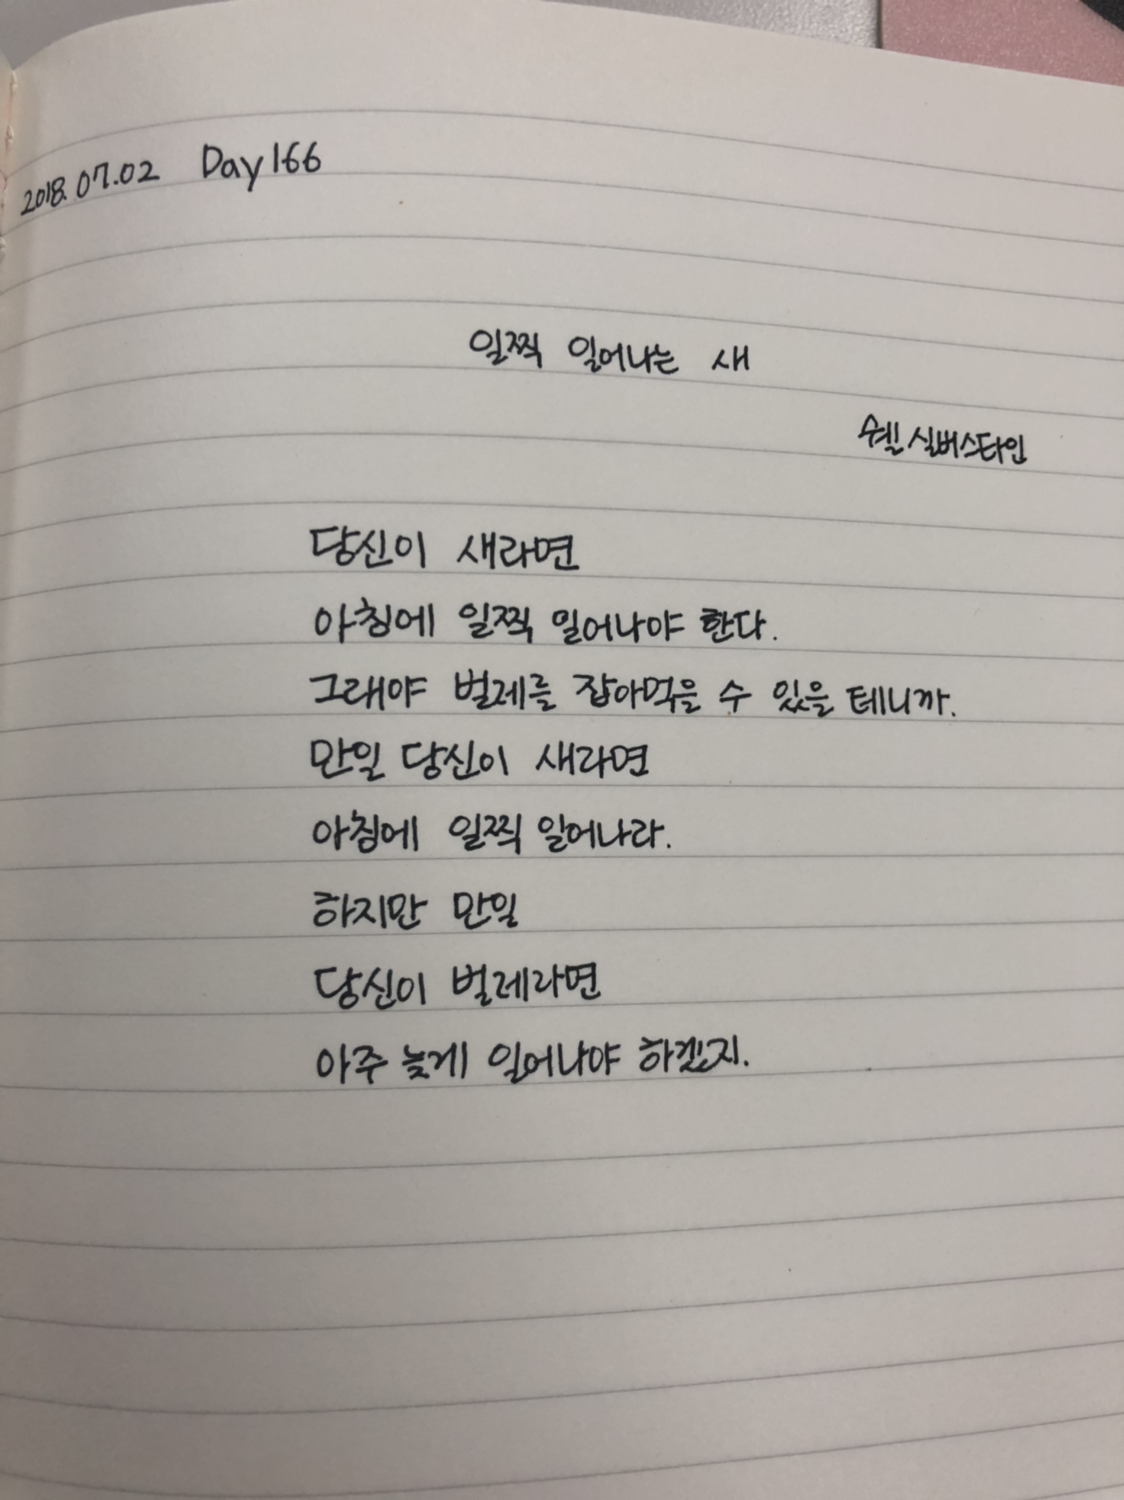 2018.07.02 Day166
일찍 일어나는 새
쉘 실버스타인
당신이 새라면
아침에 일찍 일어나야 한다.
그래야 벌레를 잡아먹을 수 있을 테니까.
만일 당신이 새라면
아침에 일찍 일어나라.
하지만 만일
당신이 벌레라면
아주 늦게 일어나야 하겠지.